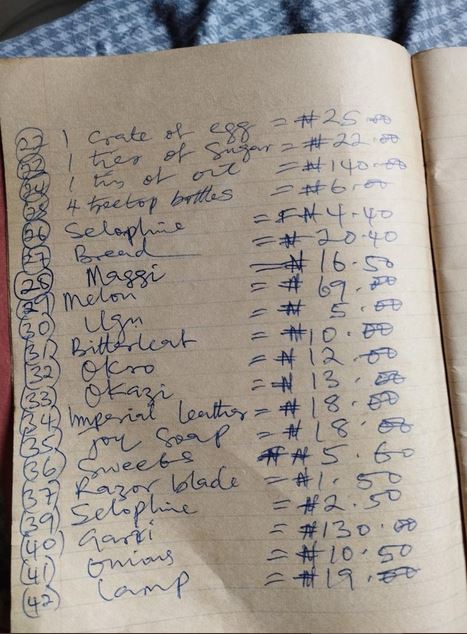 (22) 1 crate of egg = ₦25.00
(23) 1 ties of Sugar = ₦22.00
(24) 1 tin of oil = ₦140.00
(25) 4 treetop bottles = ₦6.00
(26) Selophine = ₦4.40
(27) Bread = ₦20.40
(28) Maggi = ₦16.50
(29) Melon = ₦69.00
(30) Ugu = ₦5.00
(31) Bitterleaf = ₦10.00
(32) Okro = ₦12.00
(33) Okazi = ₦13.00
(34) Imperial leather = ₦18.00
(35) Joy Soap = ₦18.00
(36) Sweets ₦ 5.60
(37) Razor blade = ₦1.50
(39) Selophine = ₦2.50
(40) Garri = ₦130.00
(41) Onions = ₦10.50
(42) Lamp = ₦19.00